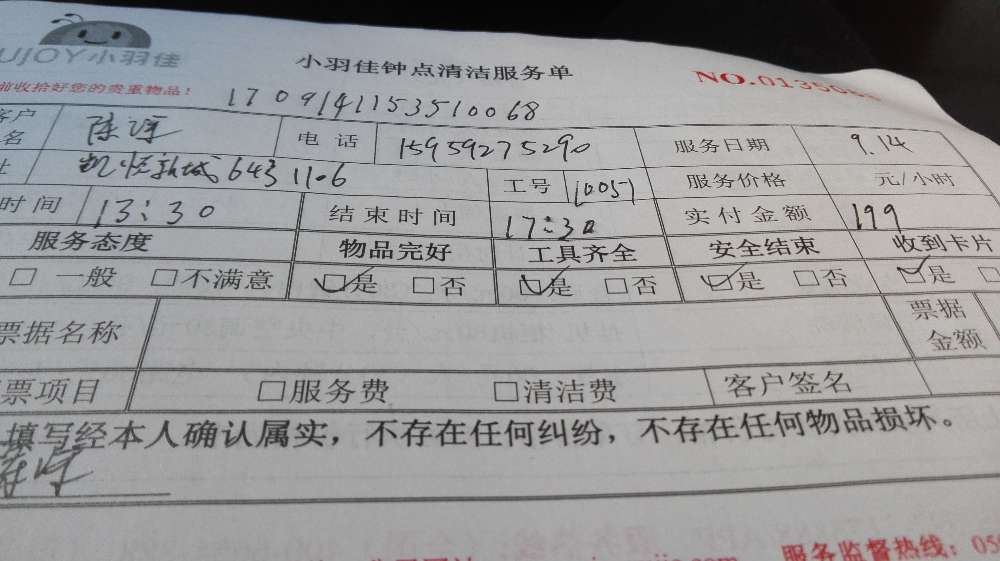 UJOY小羽佳
小羽佳钟点清洁服务单
NO.0135
前收拾好您的贵重物品!
170914115351 0068
客户
名
电 话 15959275290 服务日期 9.14
址 643 1106 工号 10057 服务价格 元/小时
时间 13:30 结束时间 17:30 实付金额 199
服务态度 物品完好 工具齐全 安全结束 收到卡片
□ 一般 □不满意 ☑是 □否 ☑是 □否 ☑是 □否 ☑是 □
票据名称 票据
金额
票项目 □服务费 □清洁费 客户签名
填写经本人确认属实，不存在任何纠纷，不存在任何物品损坏。
服务监督热线：05